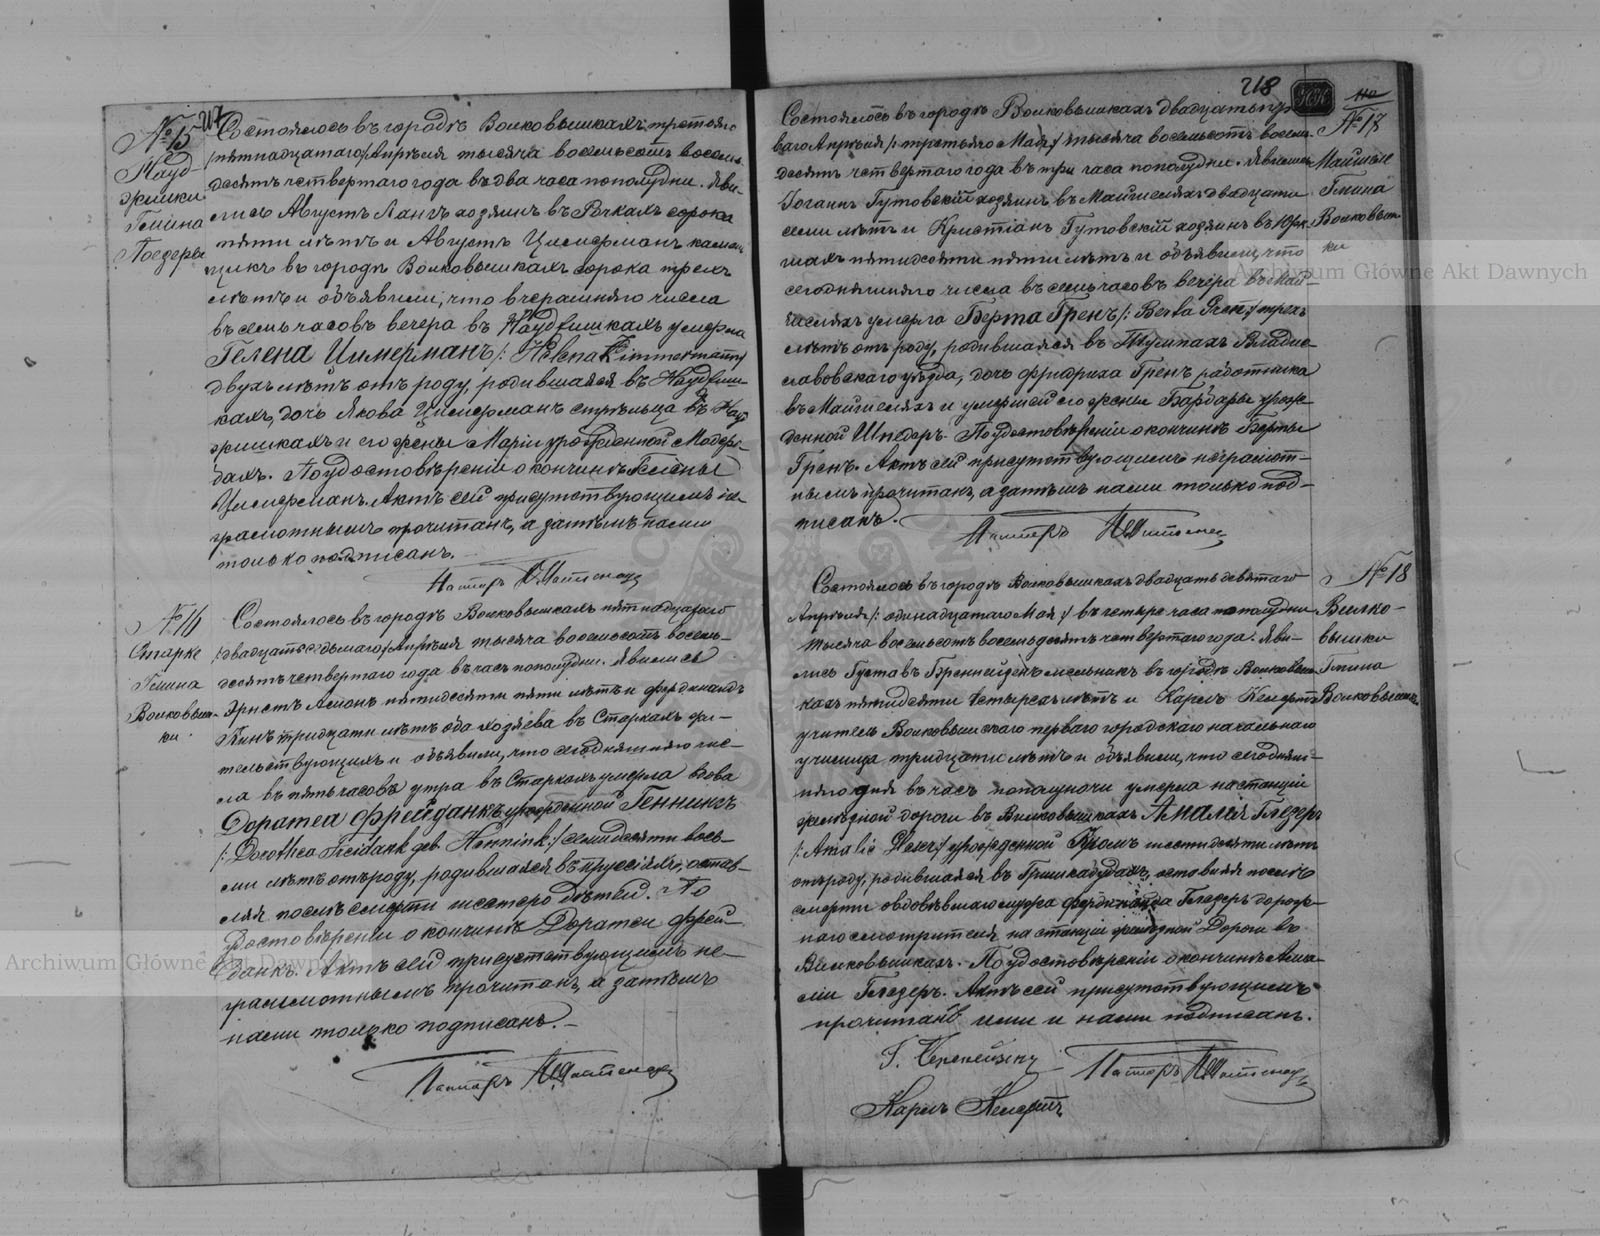 217
№ 15
Науд-
жишки
Гмина
Состоялось въ городѣ Волковышкахъ третьяго
/пятнадцатаго/ Апрѣля тысяча восемьсотъ восемь-
десятъ четвертаго года въ два часа пополудни. Яви-
лись Августъ Лангъ хозяинъ въ Рѣчкахъ сорока
пяти лѣтъ и Августъ Цимерманъ камен-
щикъ въ городѣ Волковышкахъ сорока трехъ
лѣтъ и объявили, что вчерашняго числа
въ семь часовъ вечера въ Наудзишкахъ умерла
Гелена Цимерманъ /: Helena Zimmermann :/
двухъ лѣтъ отъ роду, родившаяся въ Наудзиш-
кахъ, дочь Якова Цимерманъ стрѣльца въ Науд-
жишкахъ и его жены Маріи урожденной
По удостовѣреніи о кончинѣ Гелены
Цимерманъ. Актъ сей присутствующимъ не-
грамотнымъ прочитанъ, а затѣмъ нами
только подписанъ.
Пасторъ
№ 16
Старке
Гмина
Волковыш-
ки.
Состоялось въ городѣ Волковышкахъ пятнадцатаго
/двадцать седьмаго/ Апрѣля тысяча восемьсотъ восемь-
десятъ четвертаго года въ часъ пополудни. Явились
Эрнстъ пятидесяти пяти лѣтъ и Фердинандъ
тридцати лѣтъ оба хозяева въ Старкахъ жи-
тельствующихъ и объявили, что сегодняшняго чис-
ла въ пять часовъ утра въ Старкахъ умерла вдова
Доратея Фрейданкъ урожденной Геннингъ
/: Dorothea Freidank geb. Hennink :/ семидесяти вось-
ми лѣтъ отъ роду, родившаяся въ Пруссіяхъ, остав-
ляя послѣ смерти шестеро дѣтей. По
удостовѣреніи о кончинѣ Доратеи Фрей-
данкъ. Актъ сей присутствующимъ не-
грамотнымъ прочитанъ, а затѣмъ
нами только подписанъ.
Пасторъ
218
№ 17
Гмина
Волковыш-
ки
Состоялось въ городѣ Волковышкахъ двадцать пер-
ваго Апрѣля /: третьяго Мая :/ тысяча восемьсотъ восемь-
десятъ четвертаго года въ три часа пополудни. Явились
Іоганъ Гутовскій хозяинъ въ двадцати
семи лѣтъ и Кристіанъ Гутовскій хозяинъ въ
пятидесяти пяти лѣтъ и объявили, что
сегодняшняго числа въ семь часовъ вечера въ Май-
умерла Берта Гренъ /: Berta Gren :/ трехъ
лѣтъ отъ роду, родившаяся въ Владис-
лавовскаго уѣзда, дочь Фридриха Гренъ работника
въ и умершей его жены Барбары урож-
денной Шнедеръ. По удостовѣреніи о кончинѣ Берты
Гренъ. Актъ сей присутствующимъ неграмот-
нымъ прочитанъ, а затѣмъ нами только под-
писанъ.
Пасторъ
№ 18
Вилко-
вышки
Гмина
Волковышки
Состоялось въ городѣ Волковышкахъ двадцать девятаго
Апрѣля /: одинадцатаго Мая :/ въ четыре часа пополудни
тысяча восемьсотъ восемьдесятъ четвертаго года. Яви-
лись Густавъ мельникъ въ городѣ Волковыш-
кахъ пятидесяти четырехъ лѣтъ и Карлъ
учитель Волковышскаго перваго городскаго начальнаго
училища тридцати лѣтъ и объявили, что сегодняш-
няго дня въ часъ пополуночи умерла на станціи
желѣзной дороги въ Вилковышкахъ Амалія Глезеръ
/: Amalie Glezer :/ урожденной Кромъ шестидесяти лѣтъ
отъ роду, родившаяся въ оставляя послѣ
смерти овдовѣвшаго мужа Фердинанда Глезеръ дорож-
наго смотрителя на станціи желѣзной Дороги въ
Вилковышкахъ. По удостовѣреніи о кончинѣ Ама-
ліи Глезеръ. Актъ сей присутствующимъ
прочитанъ ими и нами подписанъ.
Пасторъ
Карлъ
Archiwum Główne Akt Dawnych
Archiwum Główne Akt Dawnych